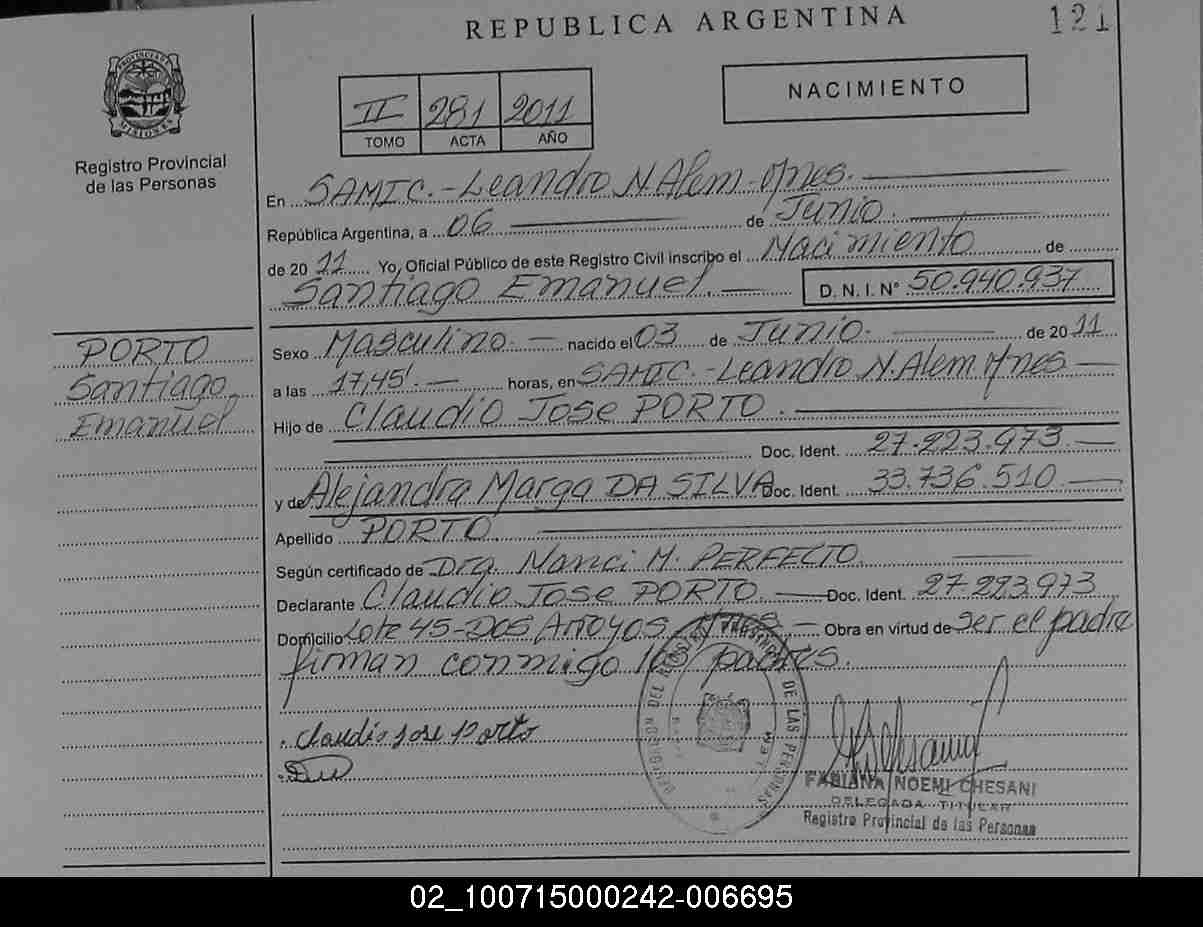 REPUBLICA ARGENTINA
121
PROVINCIA DE MISIONES
Registro Provincial
de las Personas
II 281 2011
TOMO ACTA AÑO
NACIMIENTO
En SAMIC.-Leandro N Alem-Mnes.
República Argentina, a 06 de Junio.
de 2011 Yo, Oficial Público de este Registro Civil inscribo el Nacimiento de
Santiago Emanuel. D. N. I. N° 50.940.937
PORTO
Santiago
Emanuel
Sexo Masculino. nacido el 03 de Junio. de 2011
a las 17,45'. horas, en SAMIC.-Leandro N. Alem Mnes
Hijo de Claudio Jose PORTO.
Doc. Ident. 27.223.973.
y de Alejandra Marga DA SILVA Doc. Ident. 33.736.510
Apellido PORTO.
Según certificado de Dra. Nanci M. PERFECTO.
Declarante Claudio Jose PORTO. Doc. Ident. 27.223.973
Domicilio Lote 45-DOS Arroyos Mnes Obra en virtud de ser el padre
firman conmigo los padres.
Claudio Jose Porto
DEL REGISTRO DE LAS PERSONAS
FABIANA NOEMI CHESANI
DELEGADA TITULAR
Registro Provincial de las Personas
02_100715000242-006695